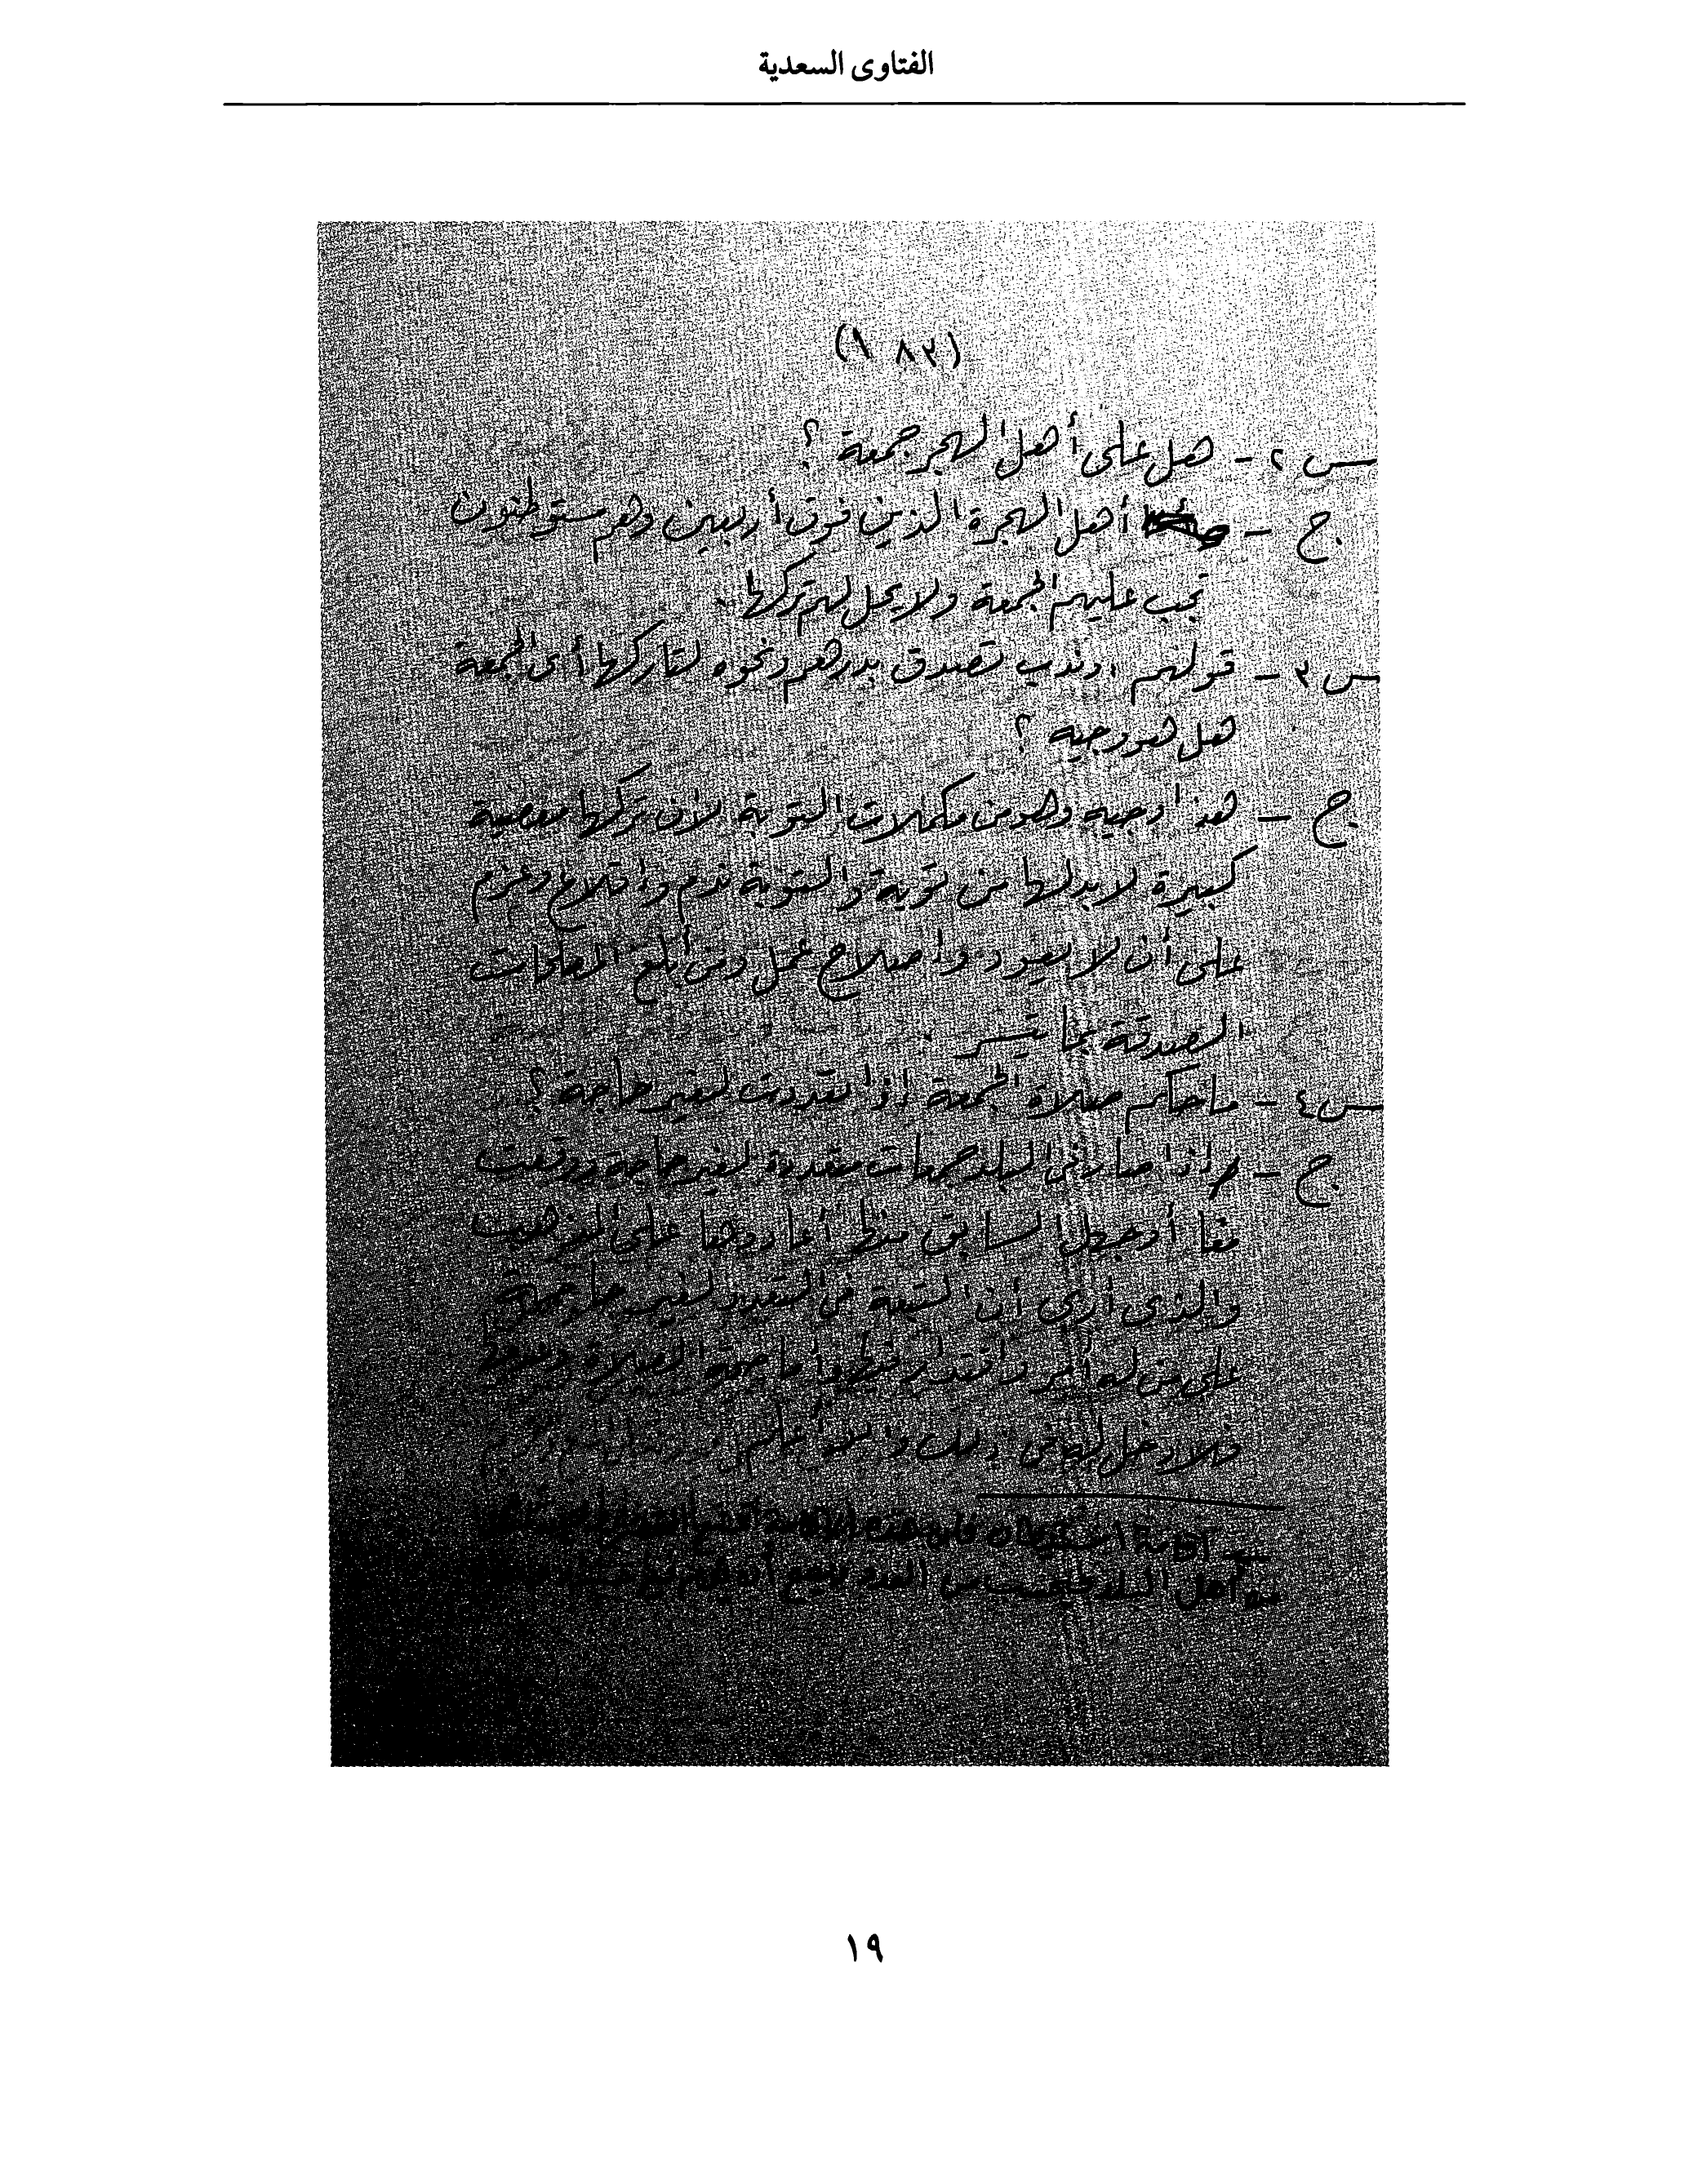 الفتاوى السعدية
(١٨٢)
س٢ - هل على أهل الهجر جمعة ؟
ج - أهل الهجرة الذين فوق أربعين وهم مستوطنون
تجب عليهم الجمعة ولا يحل لهم تركها .
س٣ - قولهم : وندب تصدق بدرهم ونحوه لتاركها أي الجمعة
هل هو وجيه ؟
ج - هذا وجيه وهو من مكملات التوبة لأن تركها معصية
كبيرة لا بد لها من توبة والتوبة ندم وإقلاع وعزم
على أن لا يعود وإصلاح عمل ومن أبلغ
الصدقة بما تيسر .
س٤ - ما حكم صلاة الجمعة إذا تعددت لغير حاجة ؟
ج - إذا صار في البلد جمعات متعددة لغير حاجة ووقعت
معا أو جهل السابق منها أعادوها على المذهب
والذي أرى أن التبعة في التعدد لغير حاجة
على من له أمر واقتدار فقط وأما صحة الصلاة
فلا دخل لها في ذلك والله أعلم
أهل البلد من العدد
١٩